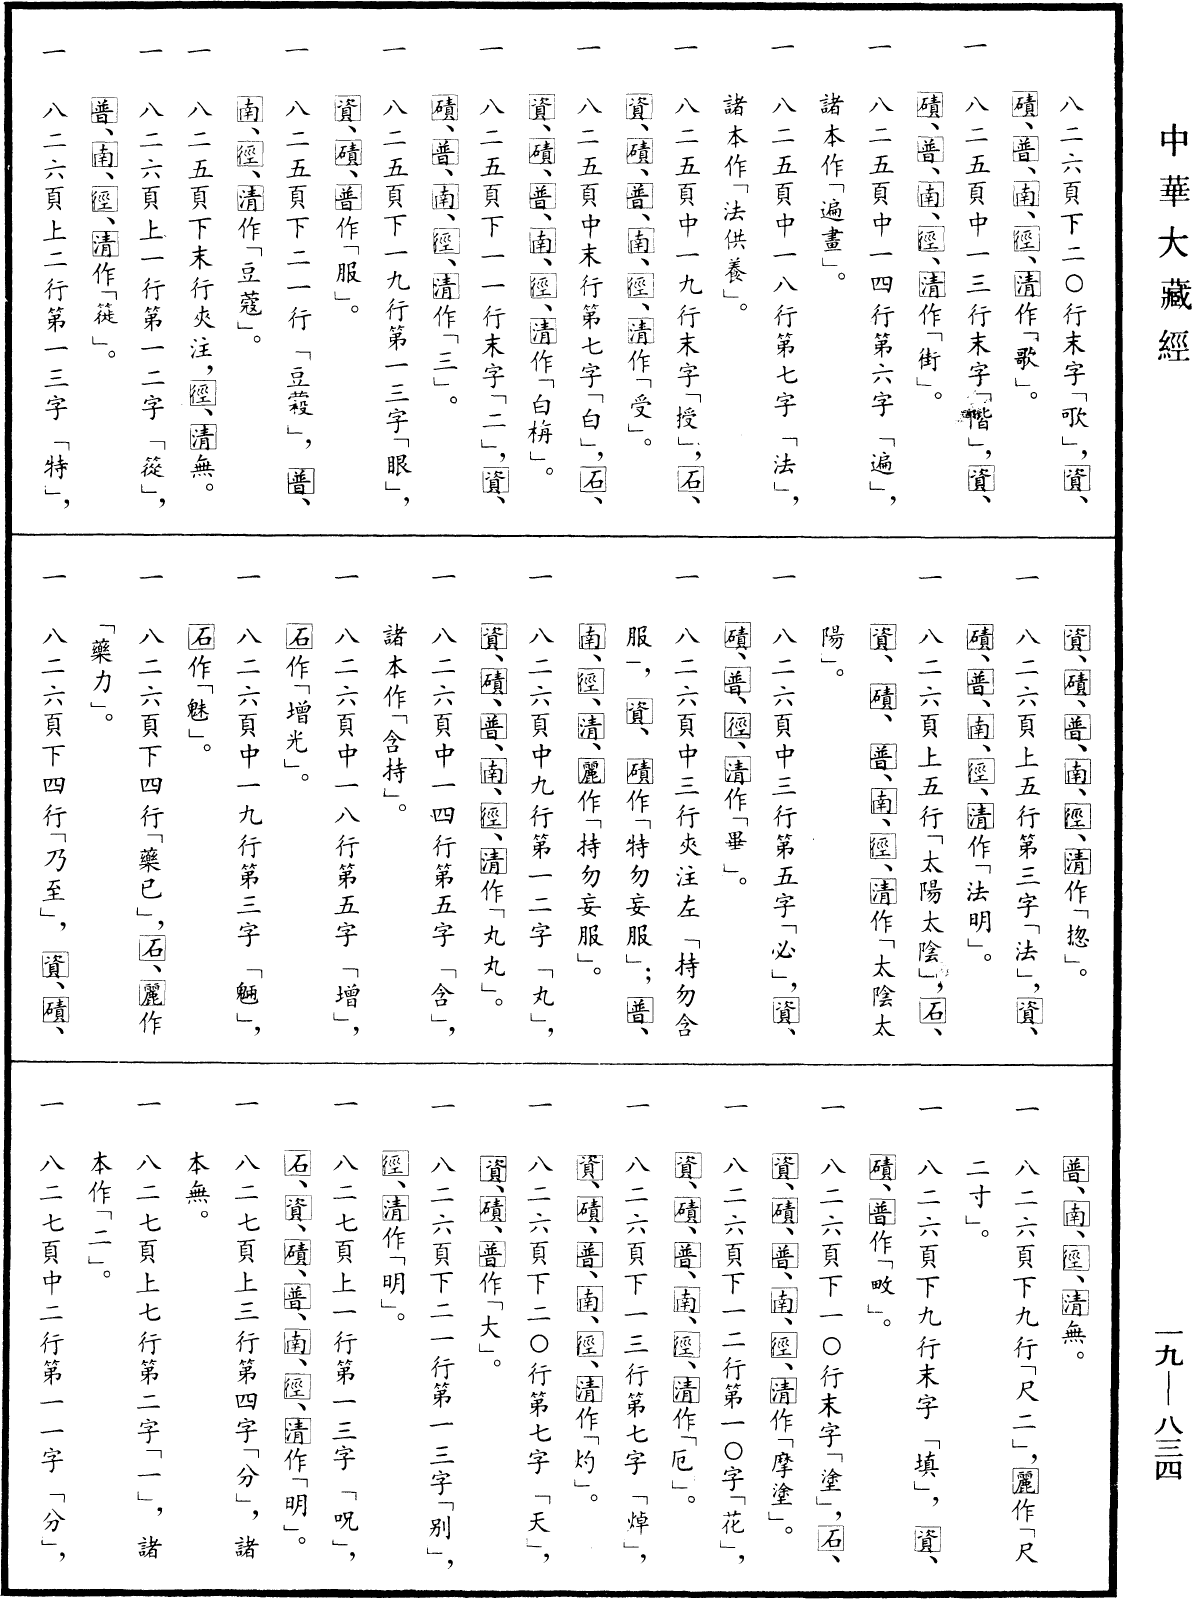 中華大藏經
八二六頁下二〇行末字「歌」，資、
磧、普、南、徑、清作「歌」。
一 八二五頁中一三行末字「偕」，資、
磧、普、南、徑、清作「街」。
一 八二五頁中一四行第六字「遍」，
諸本作「遍畫」。
一 八二五頁中一八行第七字「法」，
諸本作「法供養」。
一 八二五頁中一九行末字「授」，石、
資、磧、普、南、徑、清作「受」。
一 八二五頁中末行第七字「白」，石、
資、磧、普、南、徑、清作「白栴」。
一 八二五頁下一一行末字「二」，資、
磧、普、南、徑、清作「三」。
一 八二五頁下一九行第一三字「眼」，
資、磧、普作「服」。
一 八二五頁下二一行「豆蔲」，普、
南、徑、清作「豆蔻」。
一 八二五頁下末行夾注，徑、清無。
一 八二六頁上一行第一二字「蓯」，
普、南、徑、清作「簁」。
一 八二六頁上二行第一三字「特」，
資、磧、普、南、徑、清作「揔」。
一 八二六頁上五行第三字「法」，資、
磧、普、南、徑、清作「法明」。
一 八二六頁上五行「太陽太陰」，石、
資、磧、普、南、徑、清作「太陰太
陽」。
一 八二六頁中三行第五字「必」，資、
磧、普、徑、清作「畢」。
一 八二六頁中三行夾注左「持勿含
服」，資、磧作「特勿妄服」；普、
南、徑、清、麗作「持勿妄服」。
一 八二六頁中九行第一二字「丸」，
資、磧、普、南、徑、清作「丸丸」。
一 八二六頁中一四行第五字「含」，
諸本作「含持」。
一 八二六頁中一八行第五字「增」，
石作「增光」。
一 八二六頁中一九行第三字「魎」，
石作「魅」。
一 八二六頁下四行「藥已」，石、麗作
「藥力」。
一 八二六頁下四行「乃至」，資、磧、
普、南、徑、清無。
一 八二六頁下九行「尺二」，麗作「尺
二寸」。
一 八二六頁下九行末字「填」，資、
磧、普作「畋」。
一 八二六頁下一〇行末字「塗」，石、
資、磧、普、南、徑、清作「摩塗」。
一 八二六頁下一二行第一〇字「花」，
資、磧、普、南、徑、清作「厄」。
一 八二六頁下一三行第七字「焯」，
資、磧、普、南、徑、清作「灼」。
一 八二六頁下二〇行第七字「天」，
資、磧、普作「大」。
一 八二六頁下二一行第一三字「別」，
徑、清作「明」。
一 八二七頁上一行第一三字「呪」，
石、資、磧、普、南、徑、清作「明」。
一 八二七頁上三行第四字「分」，諸
本無。
一 八二七頁上七行第二字「一」，諸
本作「二」。
一 八二七頁中二行第一一字「分」，
一九—八三四